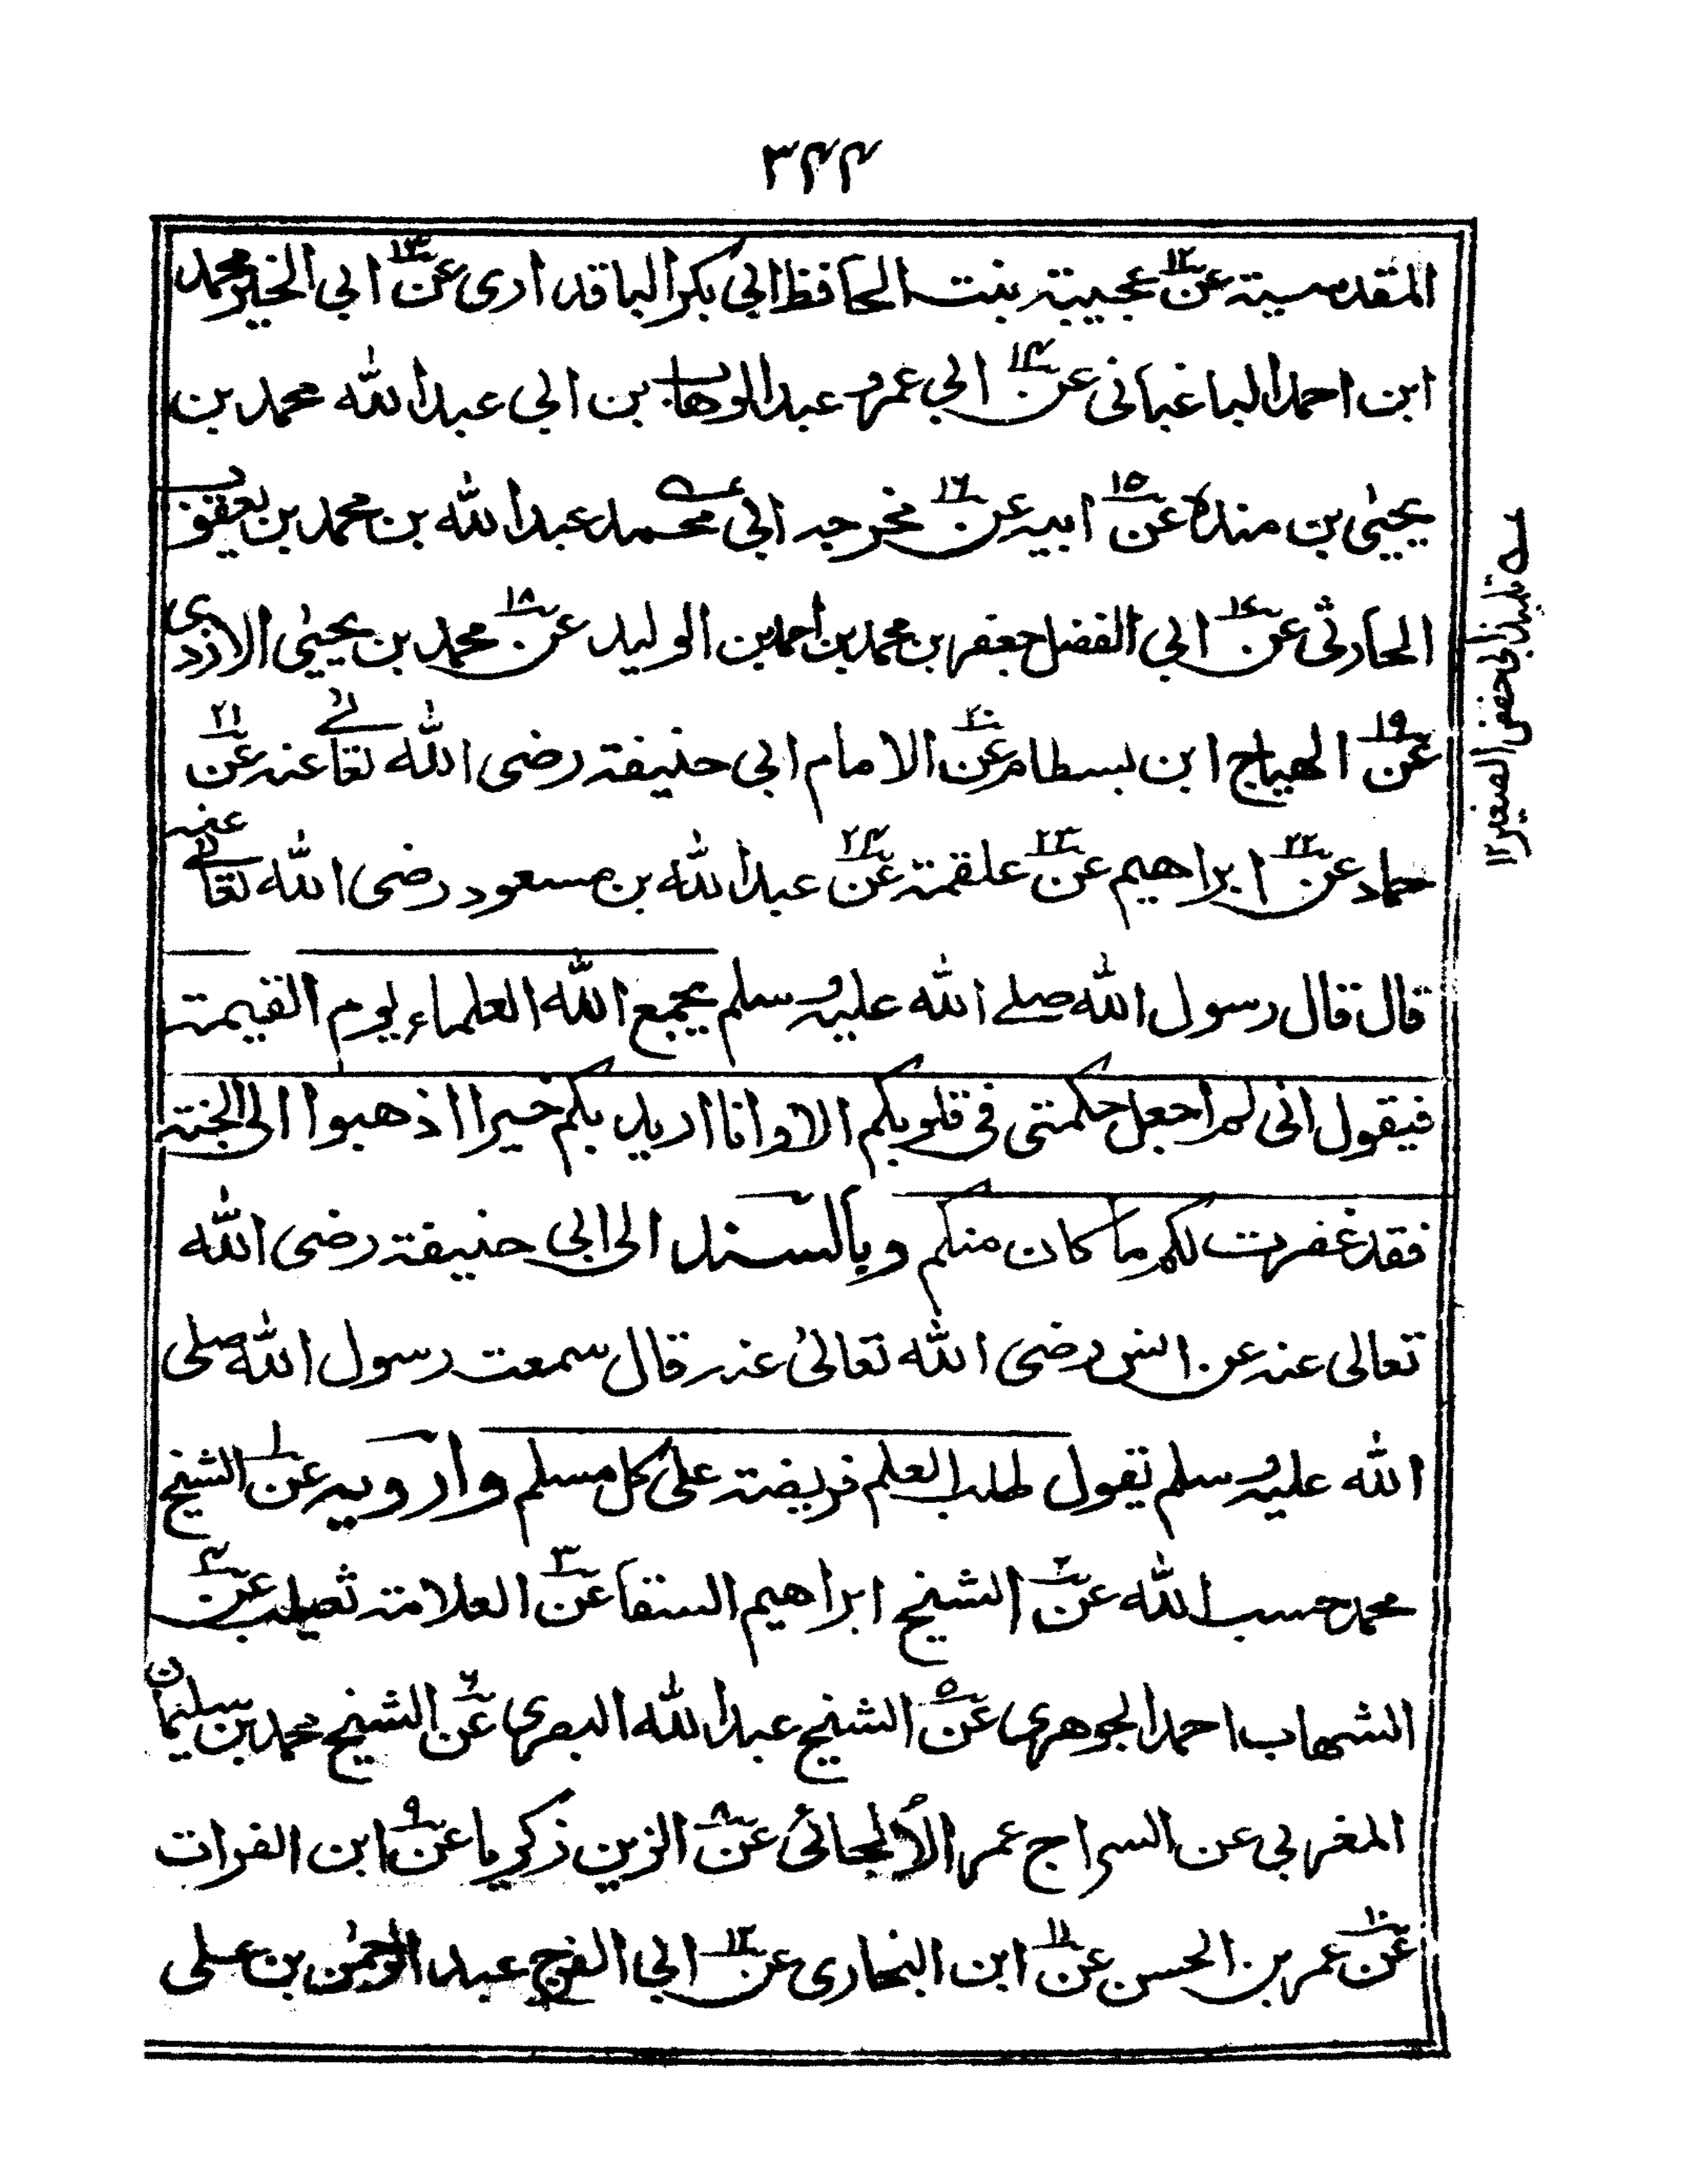 ٣٤٤
المقدسية عن١٢ عجيبة بنت الحافظ ابي بكر الباقداری عن١٣ ابي الخير محمد
ابن احمد الباغبانی عن١٤ ابي عمرو عبد الوهاب بن ابی عبد الله محمد بن
يحيیٰ بن منده عن١٥ ابيه عن١٦ مخرجه ابی محمد عبد الله بن محمد بن يعقوب
الحارثی عن١٧ ابي الفضل جعفر بن محمد بن احمد بن الوليد عن١٨ محمد بن يحيیٰ الازدی
عن١٩ الهياج ابن بسطام عن٢٠ الامام ابی حنيفة رضی الله تعالے عنه عن٢١
حماد عن٢٢ ابراهيم عن٢٣ علقمة عن٢٤ عبد الله بن مسعود رضی الله تعالے عنه
قال قال رسول الله صلے الله عليه وسلم يجمع الله العلماء يوم القيمة
فيقول انی لم اجعل حكمتی فی قلوبكم الا وانا اريد بكم خيرا اذهبوا الی الجنة
فقد غفرت لكم ما كان منكم وبالسند الی ابی حنيفة رضی الله
تعالی عنه عن انس رضی الله تعالیٰ عنه قال سمعت رسول الله صلی
الله عليه وسلم يقول طلب العلم فريضة علی كل مسلم وارويه عن١ الشيخ
محمد حسب الله عن٢ الشيخ ابراهيم السقا عن٣ العلامة ثعيلب عن٤
الشهاب احمد الجوهری عن٥ الشيخ عبد الله البصری عن٦ الشيخ محمد بن سليمان
المغربی عن السراج عمر الألجائی عن٨ الزين زكريا عن٩ ابن الفرات
عن١٠ عمر بن الحسن عن١١ ابن البخاری عن١٢ ابي الفرج عبد الرحمٰن بن علی
عے تلميذ ابی حفص الصغير ١٢